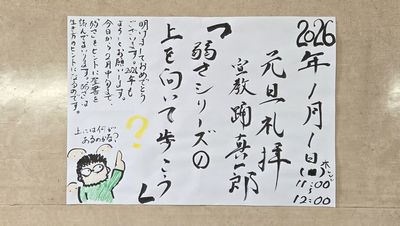 2026年1月1日(木)
11:00〜12:00
元旦礼拝
宣教 踊真一郎
「弱さシリーズの
上を向いて歩こう」
?
明けましておめでとう
ございます。2026年も
よろしくお願いします。
今日から2月中旬まで
弱さをヒントに聖書を
読んでまいります。弱さは
生き方のヒントになるのです。
上には何が
あるのかな?